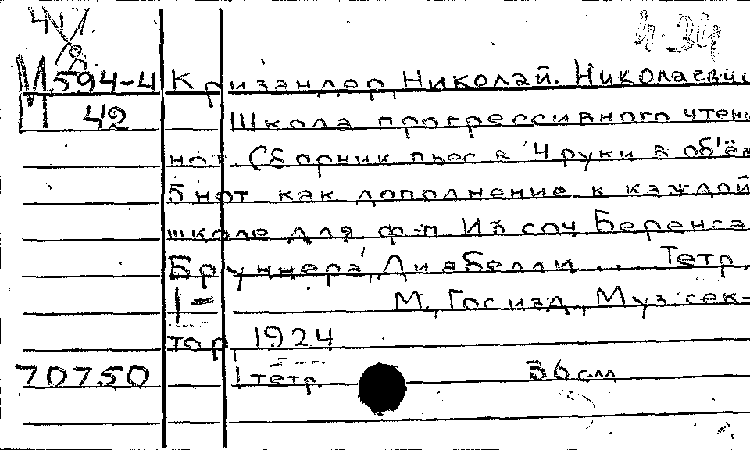 М 594-4 Кризандер, Николай Николаевич
М 42 Школа прогрессивного чтени
нот. Сборник пьес в 4 руки в об'ём
5 нот как дополнение к каждой
школе для ф-п Из соч Беренса
Бруннера, Диабелли... Тетр.
1- М., Госизд., Муз.сек-
тор 1924
70750 1 тетр. 36 см